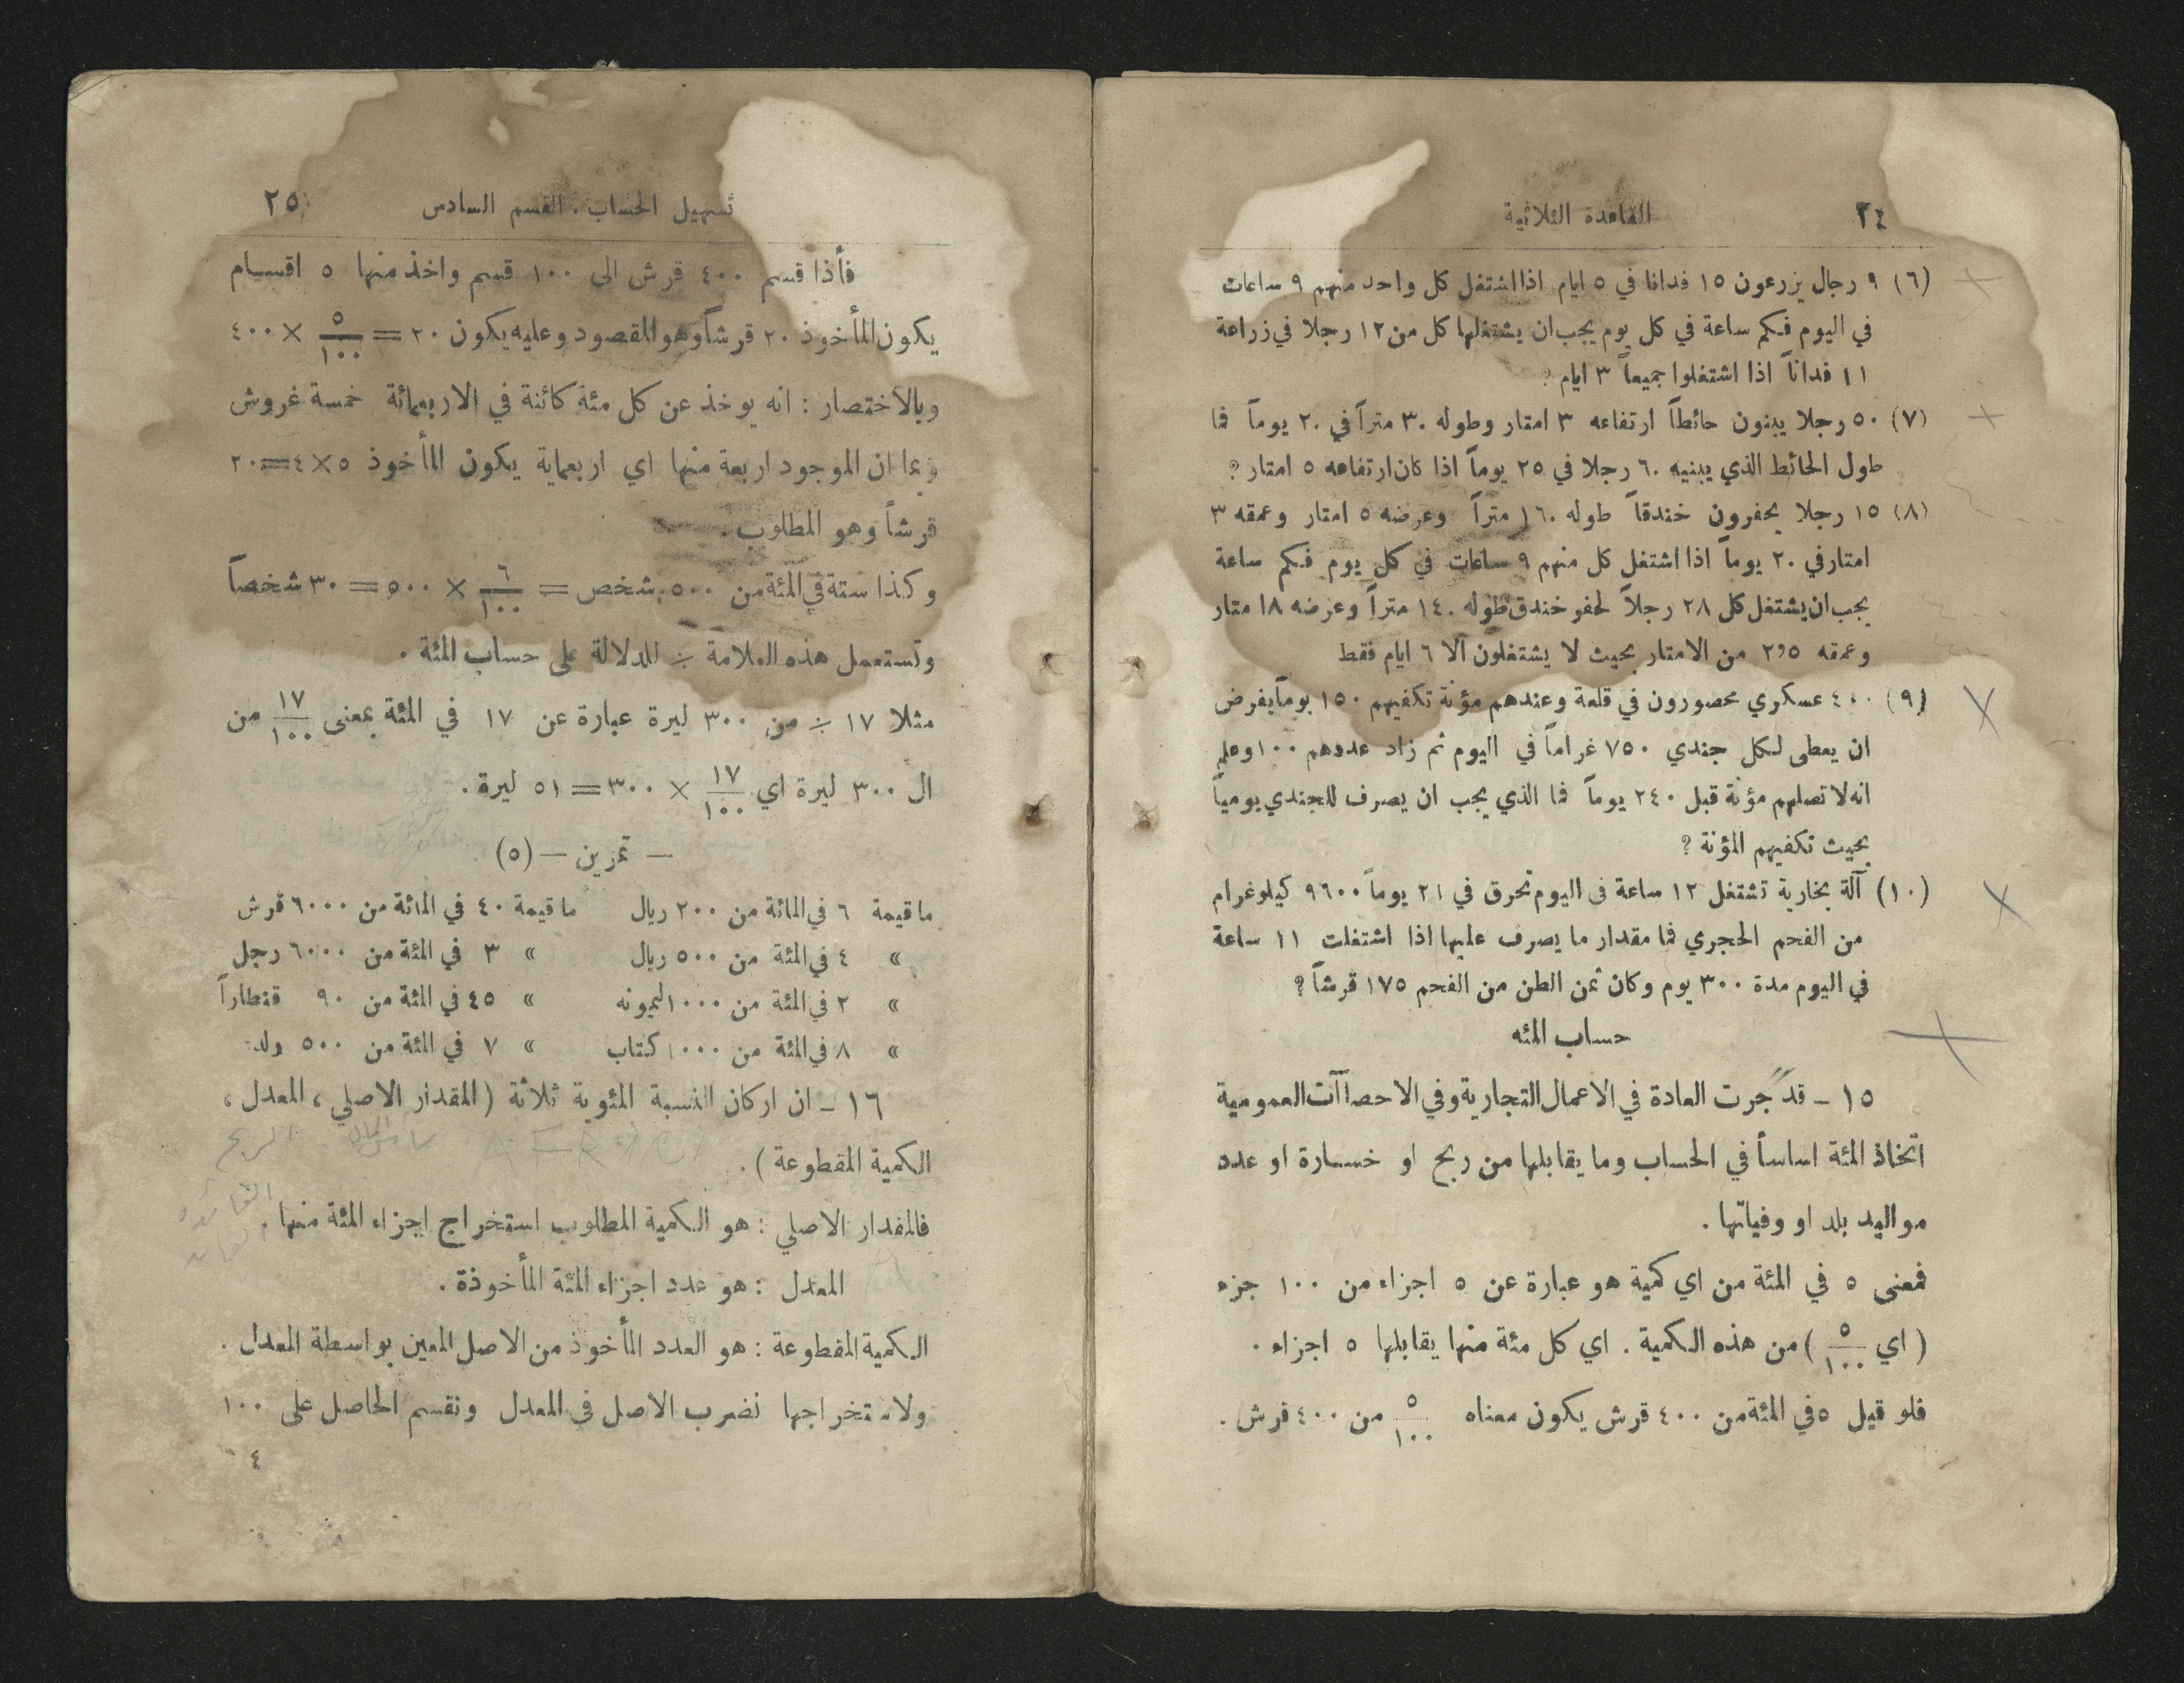 ٢٤ القاعدة الثلاثية
(٦) ٩ رجال يزرعون ١٥ فدانا في ٥ ايام اذا اشتغل كل واحد منهم ٩ ساعات
في اليوم فكم ساعة في كل يوم يجب ان يشتغلها كل من ١٢ رجلا في زراعة
١١ فداناً اذا اشتغلوا جميعاً ٣ ايام ؟
(٧) ٥٠ رجلا يبنون حائطاً ارتفاعه ٣ امتار وطوله ٣٠ متراً في ٢٠ يوماً فما
طول الحائط الذي يبنيه ٦٠ رجلا في ٢٥ يوماً اذا كان ارتفاعه ٥ امتار ؟
(٨) ١٥ رجلا يحفرون خندقاً طوله ١٦٠ متراً وعرضه ٥ امتار وعمقه ٣
امتار في ٢٠ يوماً اذا اشتغل كل منهم ٩ ساعات في كل يوم فكم ساعة
يجب ان يشتغل كل ٢٨ رجلاً لحفر خندق طوله ١٤٠ متراً وعرضه ٨ امتار
وعمقه ٢,٥ من الامتار بحيث لا يشتغلون الا ٦ ايام فقط
(٩) ٤٠٠ عسكري محصورون في قلعة وعندهم مؤنة تكفيهم ١٥٠ يوماً بفرض
ان يعطى لكل جندي ٧٥٠ غراماً في اليوم ثم زاد عددهم ١٠٠ وعلم
انه لا تصلهم مؤنة قبل ٢٤٠ يوماً فما الذي يجب ان يصرف للجندي يومياً
بحيث تكفيهم المؤنة ؟
(١٠) آلة بخارية تشتغل ١٢ ساعة في اليوم تحرق في ٢١ يوماً ٩٦٠٠ كيلوغرام
من الفحم الحجري فما مقدار ما يصرف عليها اذا اشتغلت ١١ ساعة
في اليوم مدة ٣٠٠ يوم وكان ثمن الطن من الفحم ١٧٥ قرشاً ؟
حساب المئه
١٥ - قد جرت العادة في الاعمال التجارية وفي الاحصاآت العمومية
اتخاذ المئة اساساً في الحساب وما يقابلها من ربح او خسارة او عدد
مواليد بلد او وفياتها .
فمعنى ٥ في المئة من اي كمية هو عبارة عن ٥ اجزاء من ١٠٠ جزء
( اي ٥/١٠٠ ) من هذه الكمية . اي كل مئة منها يقابلها ٥ اجزاء .
فلو قيل ٥ في المئة من ٤٠٠ قرش يكون معناه ٥/١٠٠ من ٤٠٠ قرش .
تسهيل الحساب . القسم السادس ٢٥
فأذا قسم ٤٠٠ قرش الى ١٠٠ قسم واخذ منها ٥ اقسام
يكون المأخوذ ٢٠ قرشاً وهو المقصود وعليه يكون ٢٠ = ٥/١٠٠ × ٤٠٠
وبالاختصار : انه يوخذ عن كل مئة كائنة في الاربعمائة خمسة غروش
وبما ان الموجود اربعة منها اي اربعماية يكون المأخوذ ٥×٤=٢٠
قرشاً وهو المطلوب .
وكذا ستة في المئة من ٥٠٠ شخص = ٦/١٠٠ × ٥٠٠ = ٣٠ شخصاً
وتستعمل هذه العلامة ٪ للدلالة على حساب المئة .
مثلا ١٧ ٪ من ٣٠٠ ليرة عبارة عن ١٧ في المئة بمعنى ١٧/١٠٠ من
ال ٣٠٠ ليرة اي ١٧/١٠٠ × ٣٠٠ = ٥١ ليرة .
— تمرين — (٥)
ما قيمة ٦ في المائة من ٢٠٠ ريال ما قيمة ٤٠ في المائة من ٦٠٠٠ قرش
» ٤ في المئة من ٥٠٠ ريال » ٣ في المئة من ٦٠٠٠ رجل
» ٢ في المئة من ١٠٠٠ ليمونه » ٤٥ في المئة من ٩٠ قنطاراً
» ٨ في المئة من ١٠٠٠ كتاب » ٧ في المئة من ٥٠٠ ولد
١٦ - ان اركان النسبة المئوية ثلاثة ( المقدار الاصلي ، المعدل ،
الربح
الكمية المقطوعة ) .
الفائده
فالمقدار الاصلي : هو الكمية المطلوب استخراج اجزاء المئة منها .
المعدل : هو عدد اجزاء المئة المأخوذة .
الكمية المقطوعة : هو العدد المأخوذ من الاصل المعين بواسطة المعدل .
ولاستخراجها نضرب الاصل في المعدل ونقسم الحاصل على ١٠٠
٤